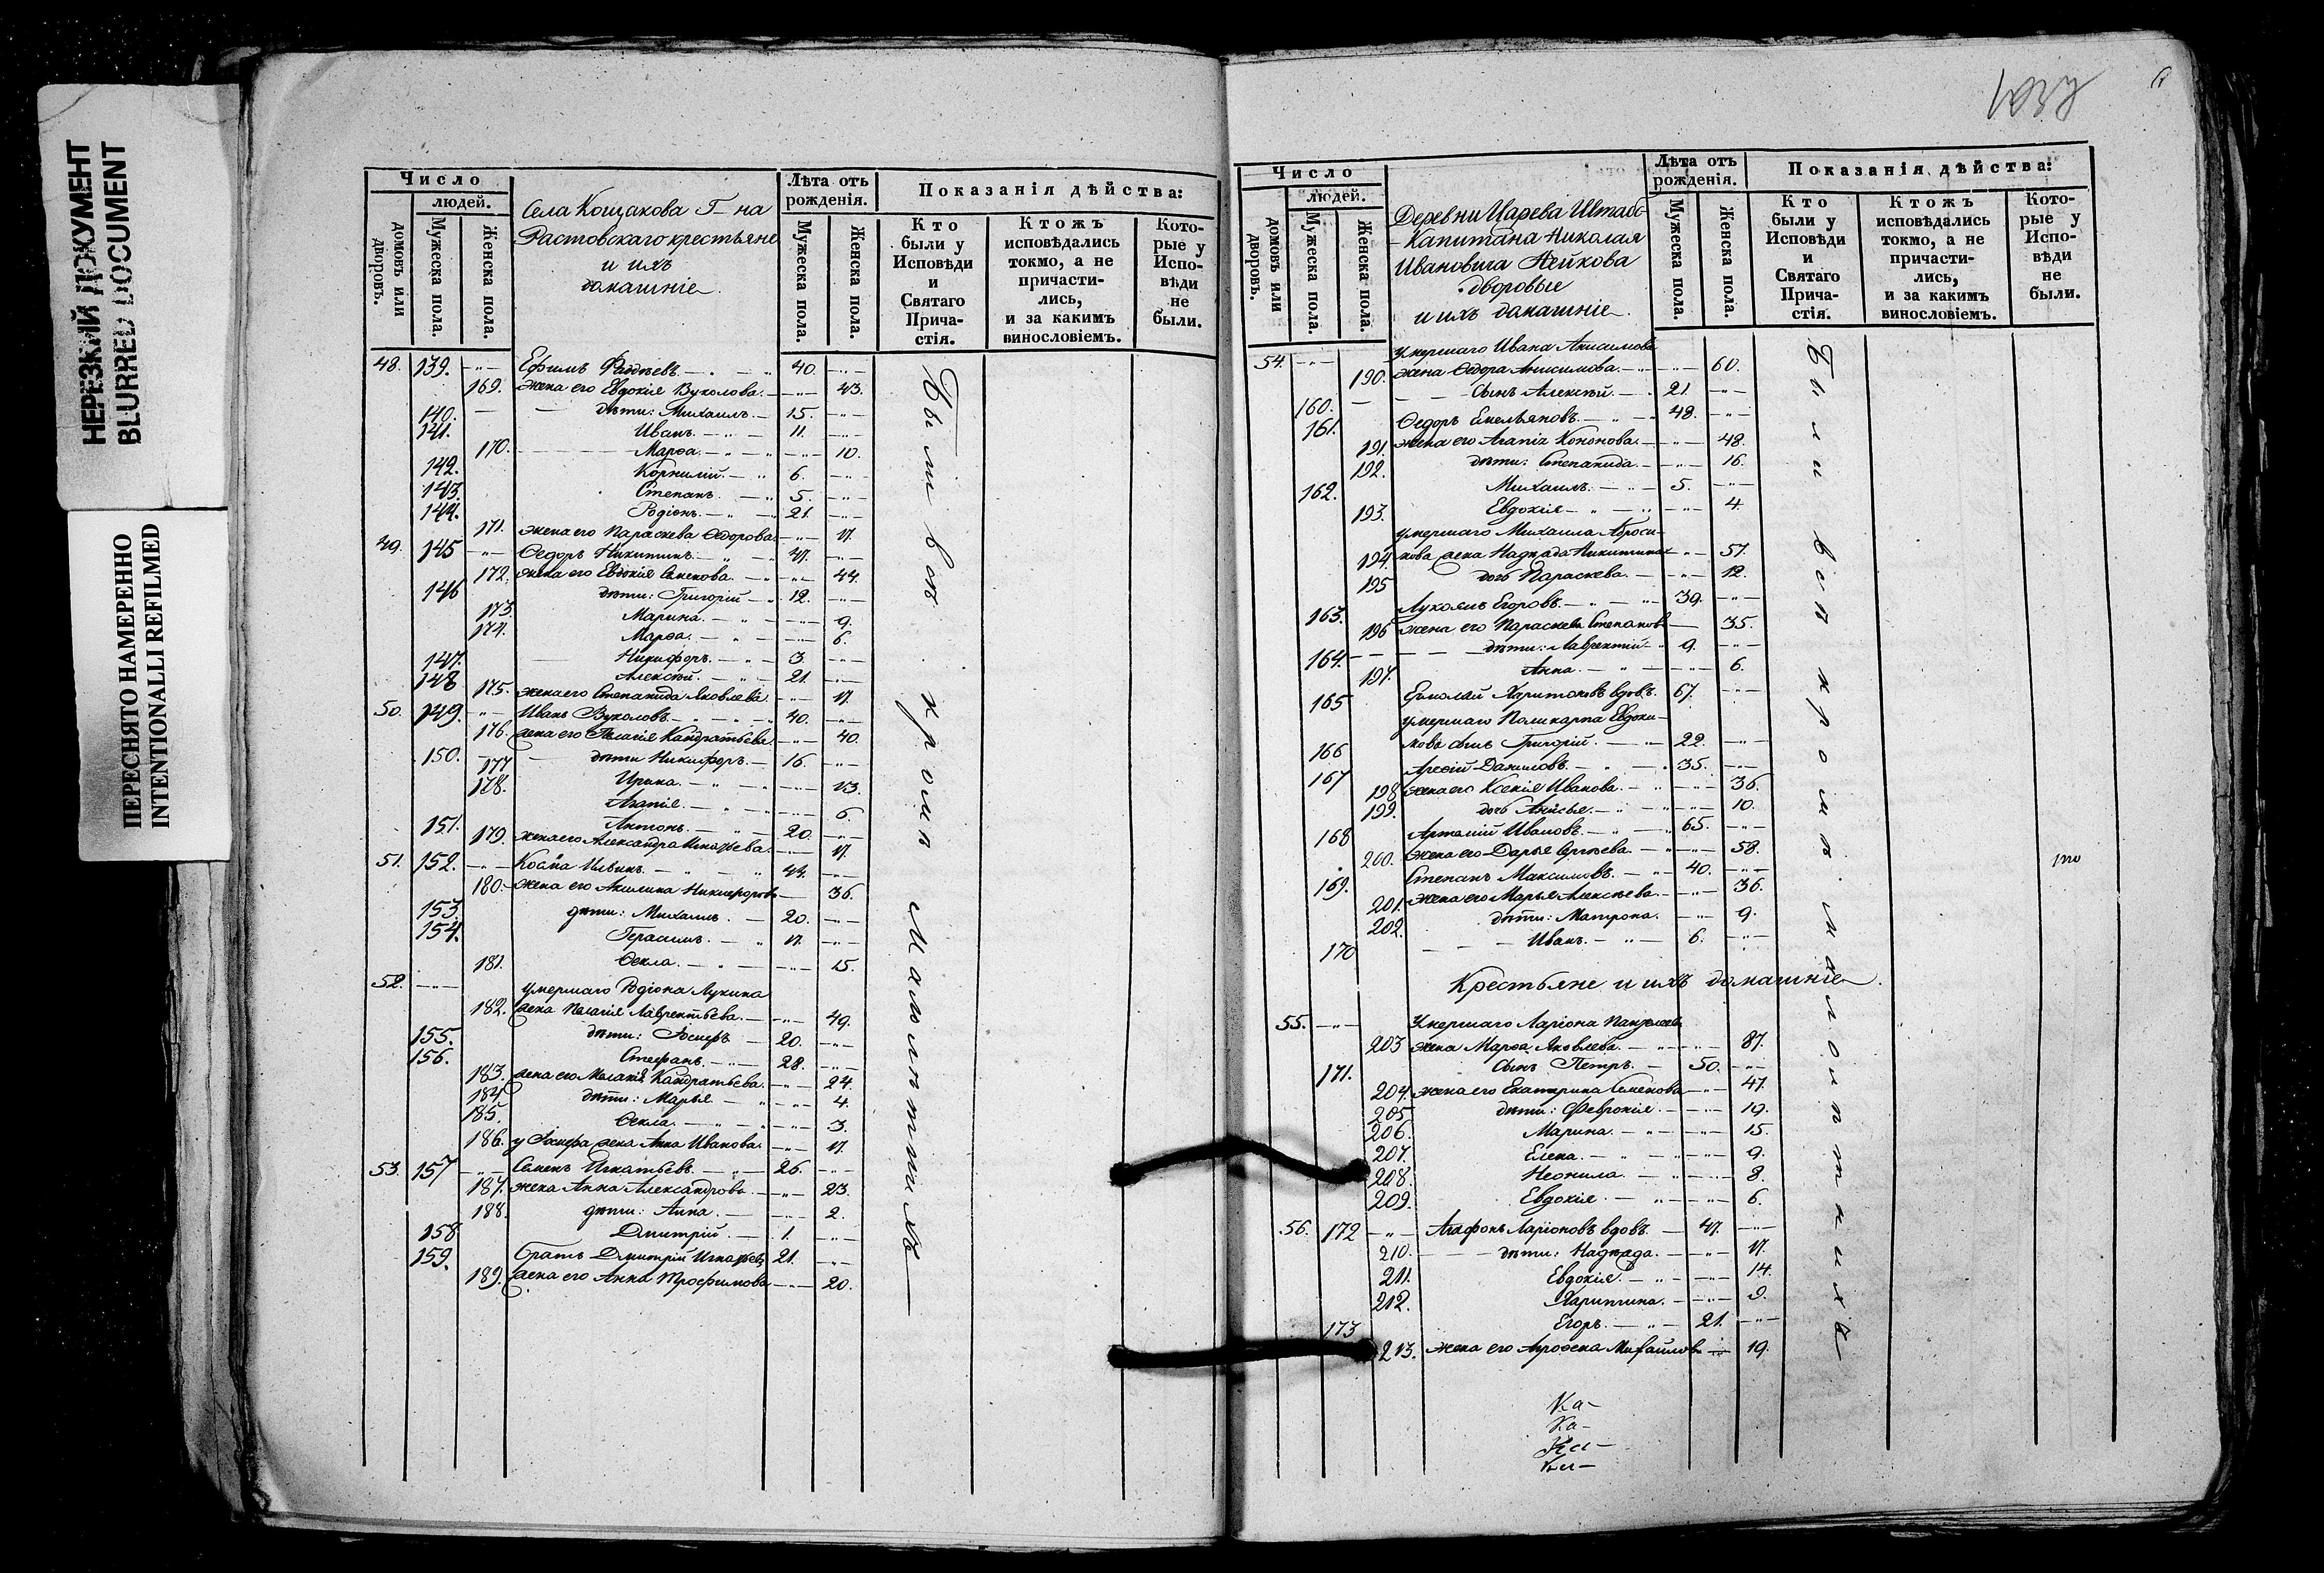 НЕРЕЗКИЙ ДОКУМЕНТ
BLURRED DOCUMENT
ПЕРЕСНЯТО НАМЕРЕННО
INTENTIONALLI REFILMED
Число
людей.
домовъ или дворовъ.
Мужеска пола.
Женска пола.
Села Кощакова Г-на
Растовскаго крестьяне
и ихъ
домашніе
Лѣта отъ
рожденія.
Мужеска пола.
Женска пола.
Показанія дѣйства:
Кто
были у
Исповѣди
и
Святаго
Прича-
стія.
Ктожъ
исповѣдались
токмо, а не
причасти-
лись,
и за какимъ
винословіемъ.
Кото-
рые у
Испо-
вѣди
не
были.
48. 139. Ефимъ Фаддѣевъ 40.
169. жена его Евдокія Вуколова. 43.
140. дѣти: Михаилъ. 15.
141. Иванъ. 11.
170. Марѳа. 10.
142. Корнилій. 6.
143. Степанъ. 5.
144. Родіонъ. 21.
171. жена его Параскева Ѳедорова. 17.
49. 145 Ѳедоръ Никитинъ 47.
172. жена его Евдокія Семенова. 44.
146 дѣти: Григорій 12.
173. Марина. 9.
174. Марѳа. 6.
147. Никифоръ. 3.
148 Алексѣй. 21.
175. жена его Степанида Яковлева. 17.
50. 149. Иванъ Вуколовъ 40.
176. жена его Пелагія Кандратьева 40.
150. дѣти Никифоръ. 16.
177 Ирина. 13.
178. Агапія. 6.
151. Антонъ. 20.
179. жена его Александра Игнатьева. 17.
51. 152. Косма Ильинъ. 44.
180. жена его Акилина Никифорова 36.
153. дѣти: Михаилъ. 20.
154. Герасимъ. 17.
181. Ѳекла. 15.
52. умершаго Родіона Лукина
182. жена Пелагія Лаврентьева. 49.
155. дѣти: Іосифъ 20.
156. Стефанъ. 28.
183. жена его Меланія Кандратьева. 24.
184 дѣти: Марья 4.
185. Ѳекла. 3.
186. у Іосифа жена Анна Иванова. 17.
53. 157 Семенъ Игнатьевъ. 26.
187. жена Анна Александрова. 23.
188. дѣти: Анна. 2.
158 Дмитрій. 1.
159. братъ Дмитрій Игнатьевъ 21.
189. жена его Анна Трофимова 20.
Были всѣ кромѣ малолѣтнихъ
Число
людей.
домовъ или дворовъ.
Мужеска пола.
Женска пола.
Деревни Царева Штабс-
-Капитана Николая
Ивановича Нейкова
дворовые
и ихъ домашніе.
Лѣта отъ
рожденія.
Мужеска пола.
Женска пола.
Показанія дѣйства:
Кто
были у
Исповѣди
и
Святаго
Прича-
стія.
Ктожъ
исповѣдались
токмо, а не
причасти-
лись,
и за какимъ
винословіемъ.
Кото-
рые у
Испо-
вѣди
не
были.
54. умершаго Ивана Анисимова
190. жена Ѳедора Анисимова. 60.
160. Сынъ Алексѣй. 21.
161. Ѳедоръ Емельяновъ. 48.
191. жена его Агапія Кононова. 48.
192. дѣти: Степанида. 16.
162. Михаилъ. 5.
193. Евдокія 4.
умершаго Михаила Абраси-
194. мова жена Надежда Никитина 57.
195 дочь Параскева. 12.
163. Лукоянъ Егоровъ. 39.
196 жена его Параскева Степанова 35.
164. дѣти: Лаврентій 9.
197. Анна. 6.
165 Ермолай Харитоновъ вдовъ. 67.
умершаго Поликарпа Евдоки-
166 мова сынъ Григорій. 22.
167 Арефій Даниловъ. 35.
198 жена его Ксенія Иванова. 36.
199. дочь Анисья. 10.
168 Артемій Ивановъ. 65.
200. жена его Дарья Сергѣева. 58.
169. Степанъ Максимовъ. 40.
201. жена его Марья Алексѣева. 36.
202. дѣти: Матрона. 9.
170 Иванъ. 6.
Крестьяне и ихъ домашніе.
55. Умершаго Ларіона Панфилова
203 жена Марѳа Яковлева. 87.
171. Сынъ Петръ. 50.
204. жена его Екатерина Семенова 47.
205 дѣти: Февронія. 19.
206. Марина. 15.
207. Елена. 9.
208. Неонила. 8.
209. Евдокія. 6.
56. 172 Агафонъ Ларіоновъ вдовъ. 47.
210. дѣти: Надежда. 17.
211. Евдокія. 14.
212. Харитина. 9.
173 Егоръ. 21.
213. жена его Афросена Михайлова 19.
Были всѣ кромѣ малолѣтнихъ
Ка-
Ка-
Ка-
Ка-